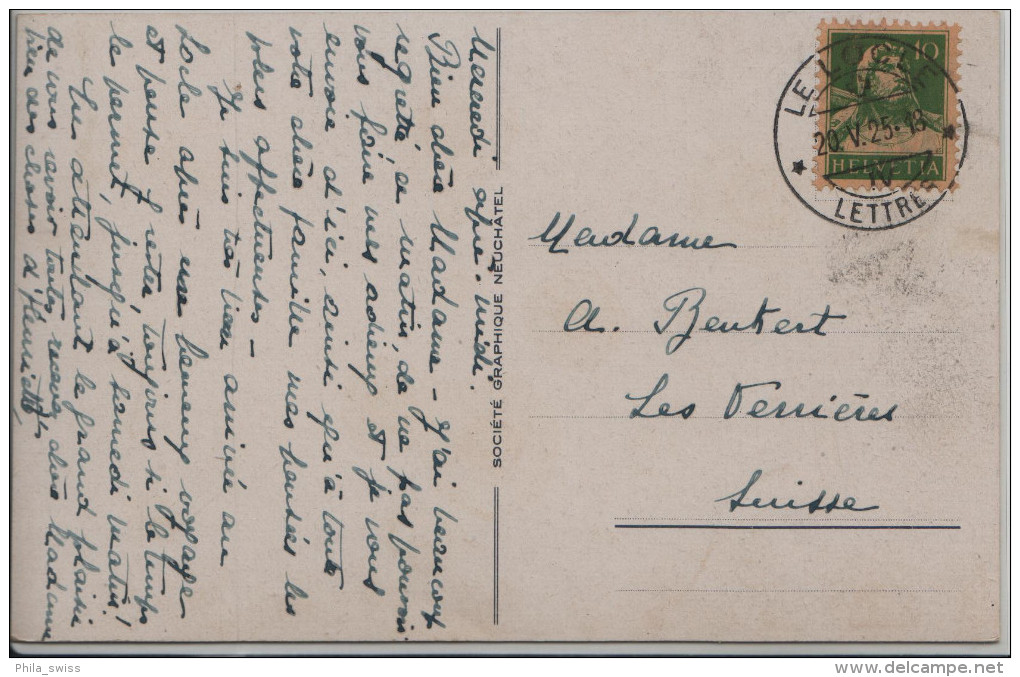 Mercredi après-midi.
Bien chère Madame – J'ai beaucoup
regretté, ce matin, de ne pas pouvoir
vous faire mes adieux et je vous
envoie d'ici, ainsi qu'à toute
votre chère famille mes pensées les
plus affectueuses –
Je suis très bien arrivée au
Locle après un beau voyage
et pense y rester toujours si le temps
le permet, jusqu'à samedi matin!
En attendant le grand plaisir
de vous revoir tous, recevez chère Madame
bien des choses d'
SOCIÉTÉ GRAPHIQUE NEUCHÂTEL
10
HELVETIA
LE LOCLE
20.V.25-18
IV
LETTRES
Madame
A. Benkert
Les Verrières
Suisse
Phila_swiss
http://www.delcampe.net